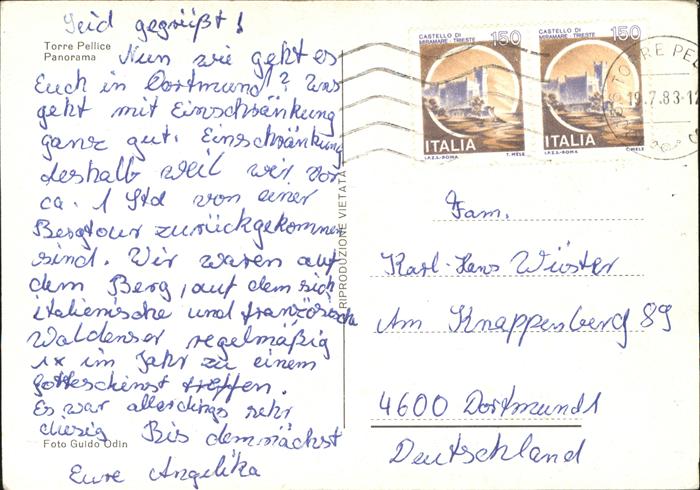 Seid gegrüßt!
Torre Pellice
Panorama
Nun wie geht es
Euch in Dortmund? Uns
geht mit Einschränkung
ganz gut. Einschränkung
deshalb weil wir vor
ca. 1 Std von einer
Bergtour zurückgekommen
sind. Wir waren auf
dem Berg, auf dem sich
italienische und französische
Waldenser regelmäßig
1x im Jahr zu einem
Gottesdienst treffen.
Es war allerdings sehr
diesig Bis demnächst
Foto Guido Odin
Eure Angelika
RIPRODUZIONE VIETATA
CASTELLO DI
MIRAMARE - TRIESTE
150
ITALIA
I.P.Z.S.-ROMA T. MELE
CASTELLO DI
MIRAMARE - TRIESTE
150
ITALIA
I.P.Z.S.-ROMA
TORRE PEL
19.7.83-12
Fam.
Karl-Hans Wüster
Am Knappenberg 89
4600 Dortmund 1
Deutschland